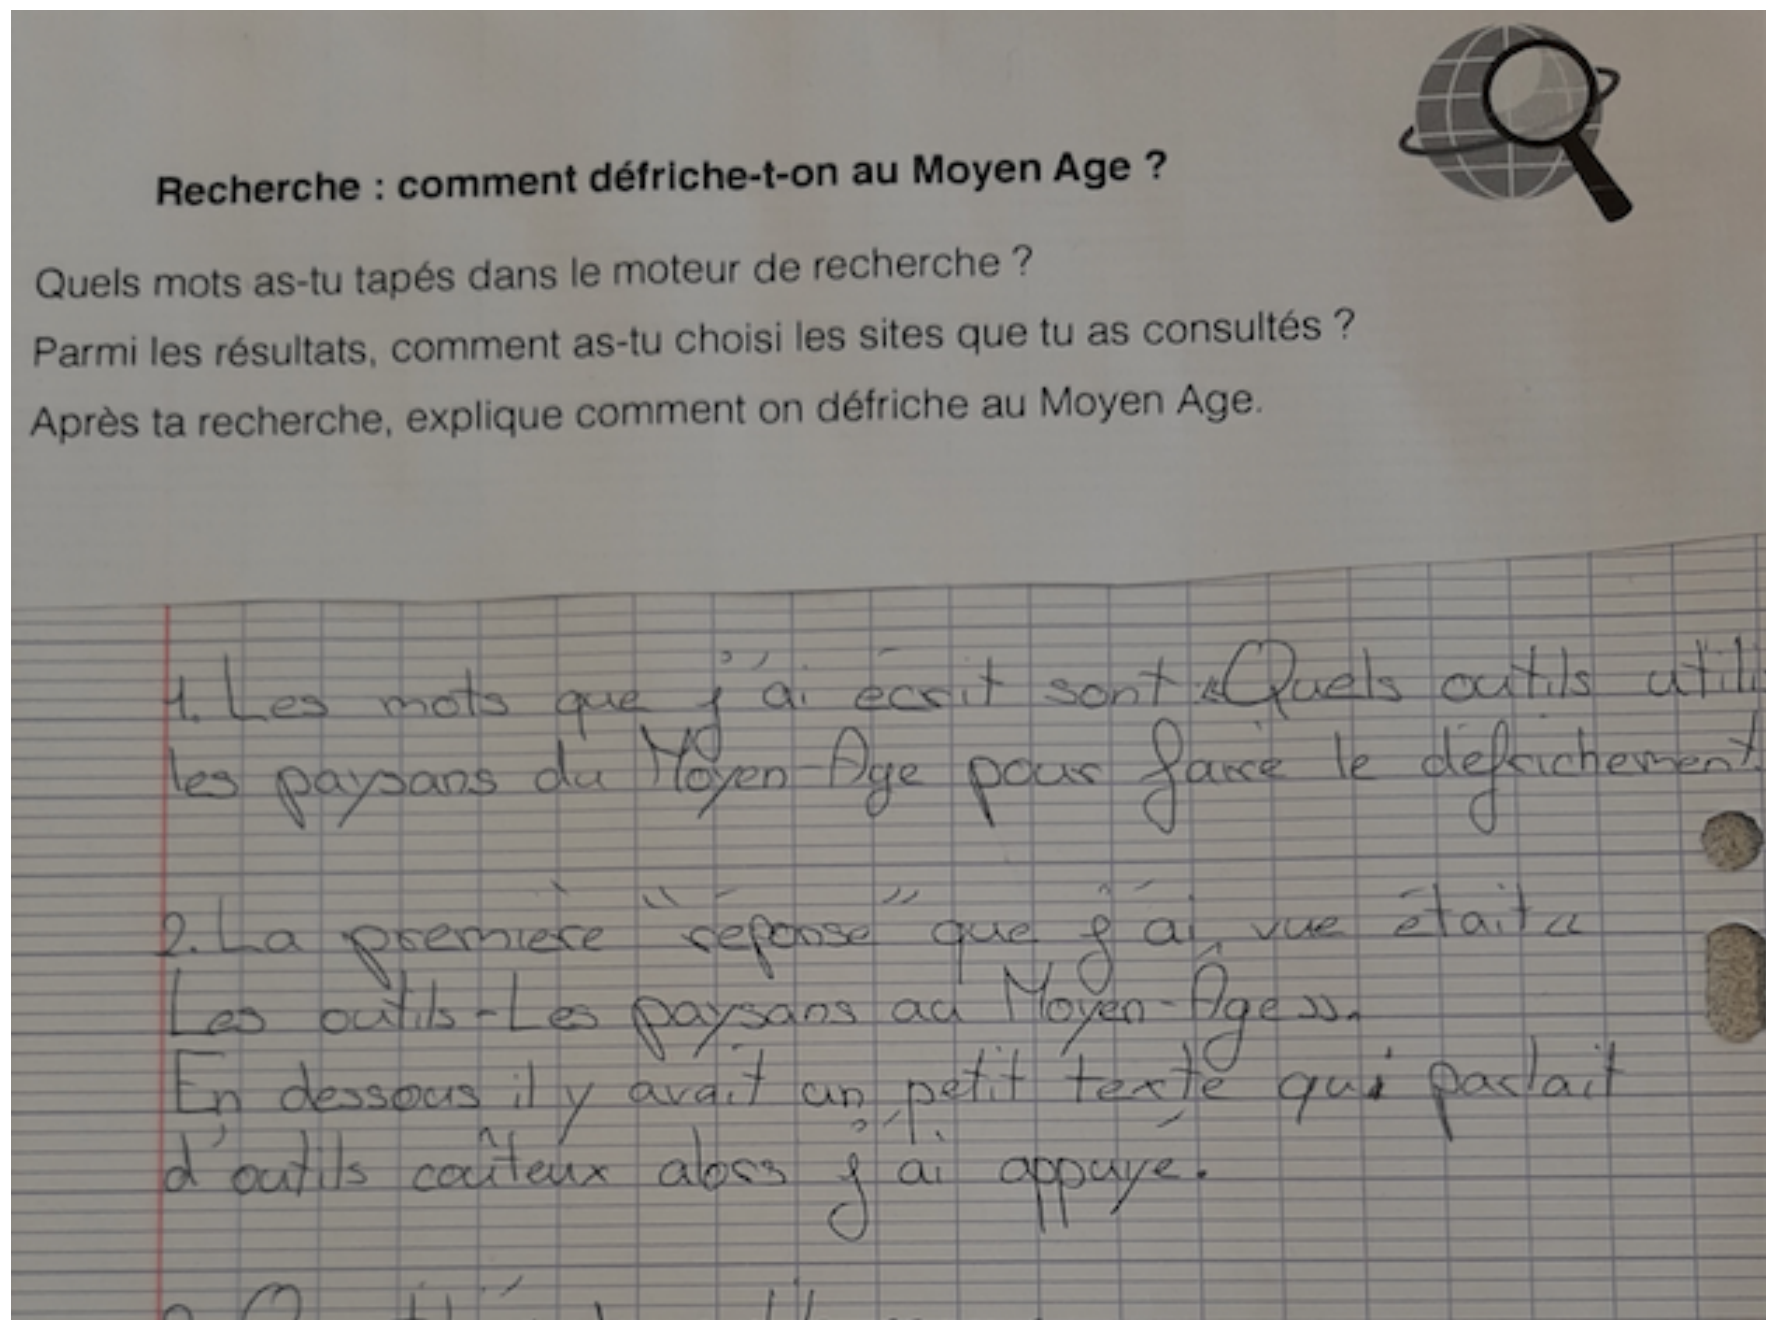 Recherche : comment défriche-t-on au Moyen Age ?
Quels mots as-tu tapés dans le moteur de recherche ?
Parmi les résultats, comment as-tu choisi les sites que tu as consultés ?
Après ta recherche, explique comment on défriche au Moyen Age.
1. Les mots que j'ai écrit sont «Quels outils utili
les paysans du Moyen-Age pour faire le défrichement
2. La première "réponse" que j'ai vue était «
Les outils-Les paysans au Moyen-Âge».
En dessous il y avait un petit texte qui parlait
d'outils coûteux alors j'ai appuyé.